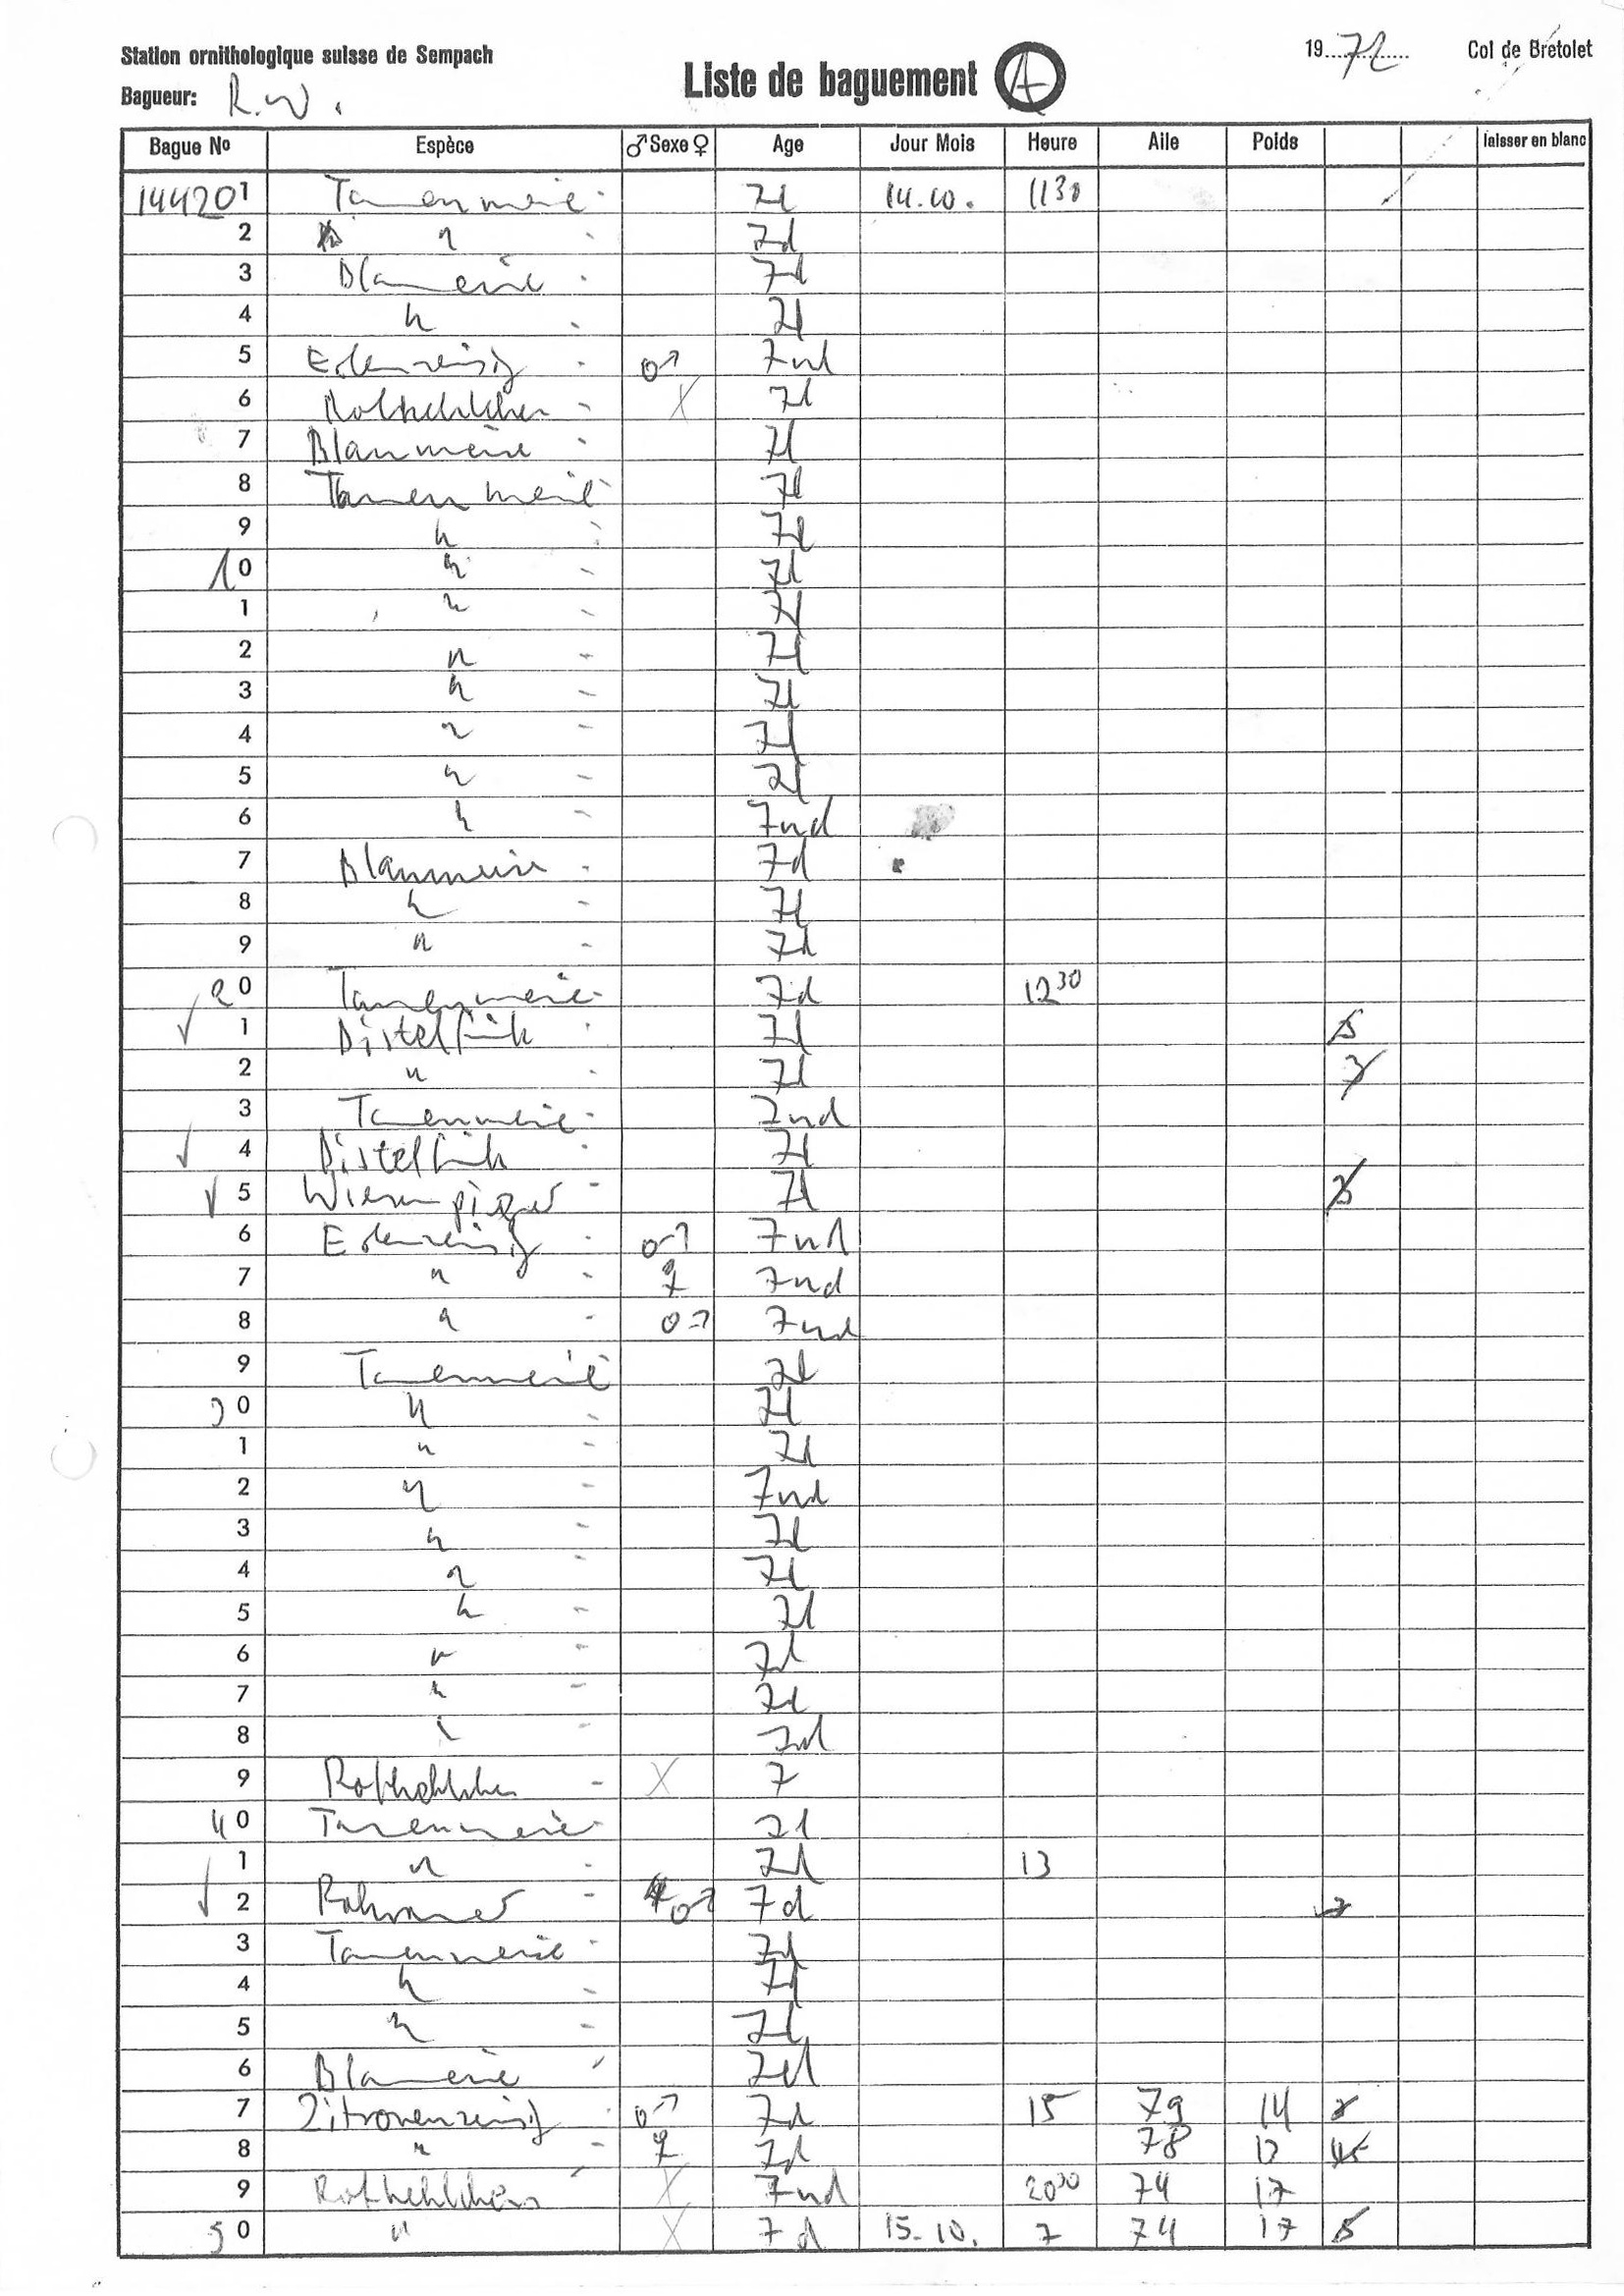 Station ornithologique suisse de Sempach
Bagueur: R.W.
Liste de baguement A
1972 Col de Bretolet
Bague No Espèce ♂ Sexe ♀ Age Jour Mois Heure Aile Poids laisser en blanc
144201 Tannenmeise 7d 14.10. 1130
2 " 7d
3 Blaumeise 7d
4 " 7d
5 Erlenzeisig ♂ 7nd
6 Rotkehlchen X 7d
7 Blaumeise 7d
8 Tannenmeise 7d
9 " 7d
10 " 7d
1 " 7d
2 " 7d
3 " 7d
4 " 7d
5 " 7d
6 " 7nd
7 Blaumeise 7d
8 " 7d
9 " 7d
20 Tannenmeise 7d 1230
✓ 1 Distelfink 7d 5
2 " 7d 3
3 Tannenmeise 7nd
✓ 4 Distelfink 7d
✓ 5 Wiesenpieper 7d
6 Erlenzeisig ♂ 7nd
7 " ♀ 7nd
8 " ♂ 7nd
9 Tannenmeise 7d
30 " 7d
1 " 7d
2 " 7nd
3 " 7d
4 " 7d
5 " 7d
6 " 7d
7 " 7d
8 " 7d
9 Rotkehlchen X 7
40 Tannenmeise 7d
1 " 7d 13
✓ 2 Rohrammer ♂ 7d
3 Tannenmeise 7d
4 " 7d
5 " 7d
6 Blaumeise 7d
7 Zitronenzeisig ♂ 7d 15 79 14
8 " ♀ 7d 78 13
9 Rotkehlchen X 7nd 2000 74 17
50 " X 7d 15.10. 7 74 17 5